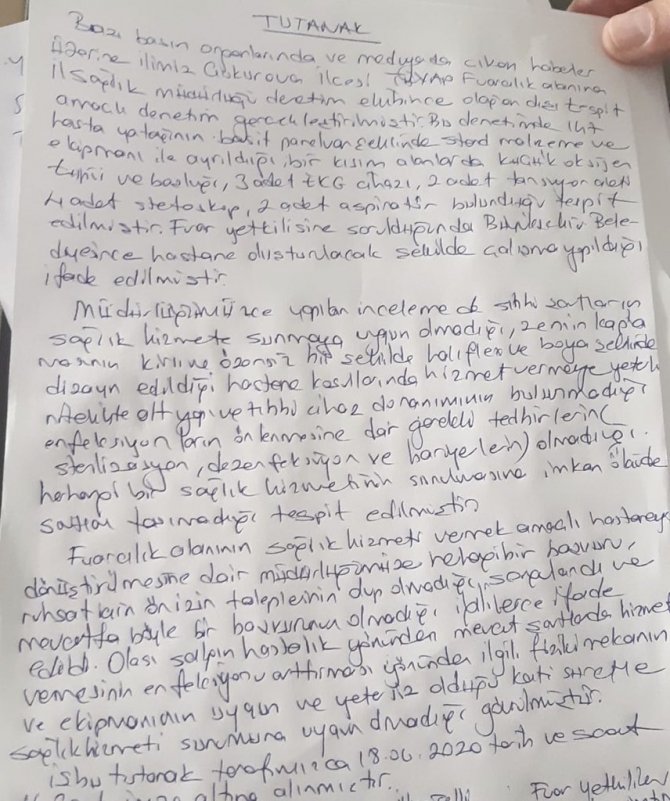 TUTANAK
Bazı basın organlarında ve medyada çıkan haberler
üzerine ilimiz Çukurova ilçesi TÜYAP Fuarcılık alanına
il Sağlık müdürlüğü denetim ekibince olağan dışı tespit
amaclı denetim gerceklestirilmistir Bu denetimde
hasta yatağının basit paravan seklinde stand malzeme ve
ekipmanı ile ayrıldığı, bir kısım alanlarda küçük oksijen
tüpü ve başlığı, 3 adet EKG cihazı, 2 adet tansiyon aleti
4 adet stetoskop, 2 adet aspiratör bulunduğu tespit
edilmistir. Fuar yetkilisine sorulduğunda Büyükşehir Bele-
diyesince hastane olusturulacak sekilde çalışma yapıldığı
ifade edilmistir.
Müdürlüğümüzce yapılan incelemede sıhhi şartların
sağlık hizmete sunmaya uygun olmadığı, zemin kapla
manın kirli ve özensiz bir sekilde halıflex ve boya seklinde
dizayn edildiği hastane kosullarında hizmet vermeye yeterli
nitelikte alt yapı ve tıbbi cihaz donanımının bulunmadığı
enfeksiyonların önlenmesine dair gerekli tedbirlerin(
sterilizasyon, dezenfeksiyon ve ) olmadığı.
herhangi bir sağlık hizmetinin sunulmasına imkan
tasımadığı tespit edilmistir
Fuarcılık alanının sağlık hizmeti vermek amaçlı hastaneye
dönüştürülmesine dair müdürlüğümüze herhangi bir basvuru,
ruhsatların ön izin taleplerinin olmadığı, sorgulandı ve
mevcutta böyle bir basvurunun olmadığı ifade
edildi. Olası salgın hastalık yönünden mevcut şartlarda hizmet
vermesinin enfeksiyonu arttırması yönünden ilgili fiziki mekanın
ve ekipmanların uygun ve yetersiz olduğu kati surette
sağlık hizmeti sunumuna uygun olmadığı görülmüştür.
işbu tutanak tarafımızca 18.06.2020 tarih ve saat
altına alınmıctır.
Fuar yetkilileri